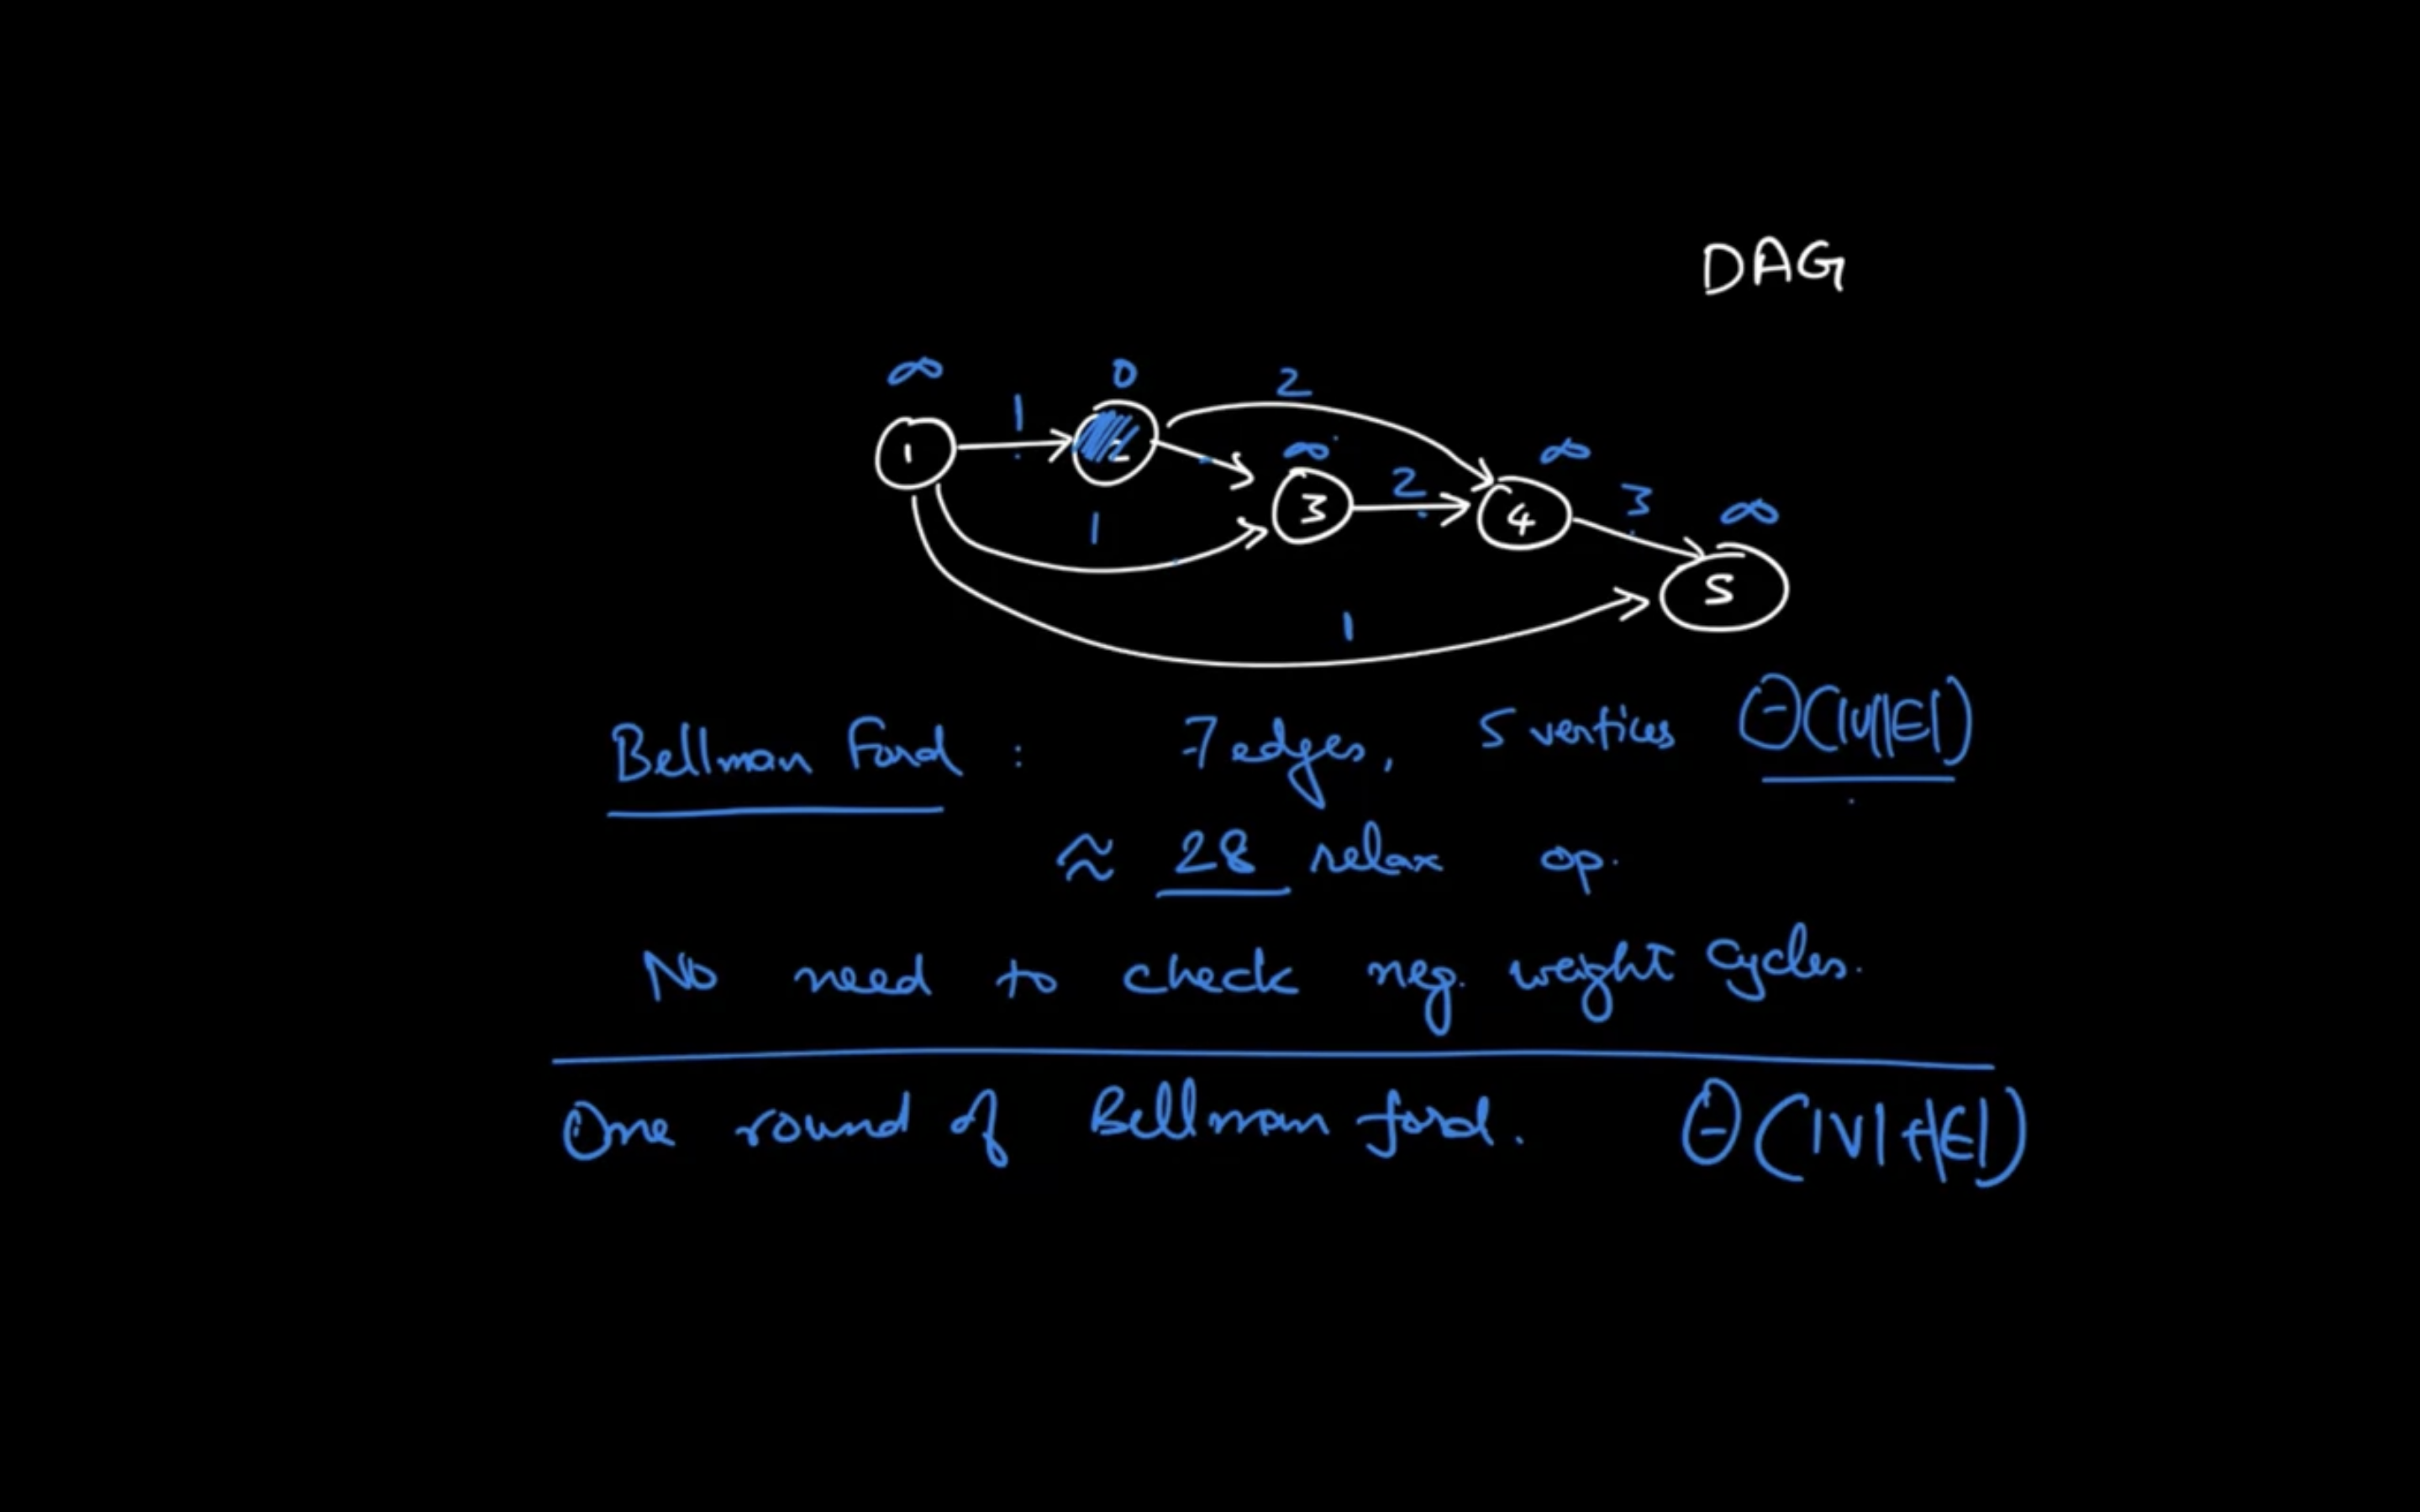 DAG
∞ 0 2
1 ∞ ∞
1 2 3 ∞
3 4
1 5
1
Bellman Ford : 7 edges, 5 vertices Θ(|V||E|)
≈ 28 relax op.
No need to check neg. weight cycles.
One round of Bellman ford. Θ(|V|+|E|)